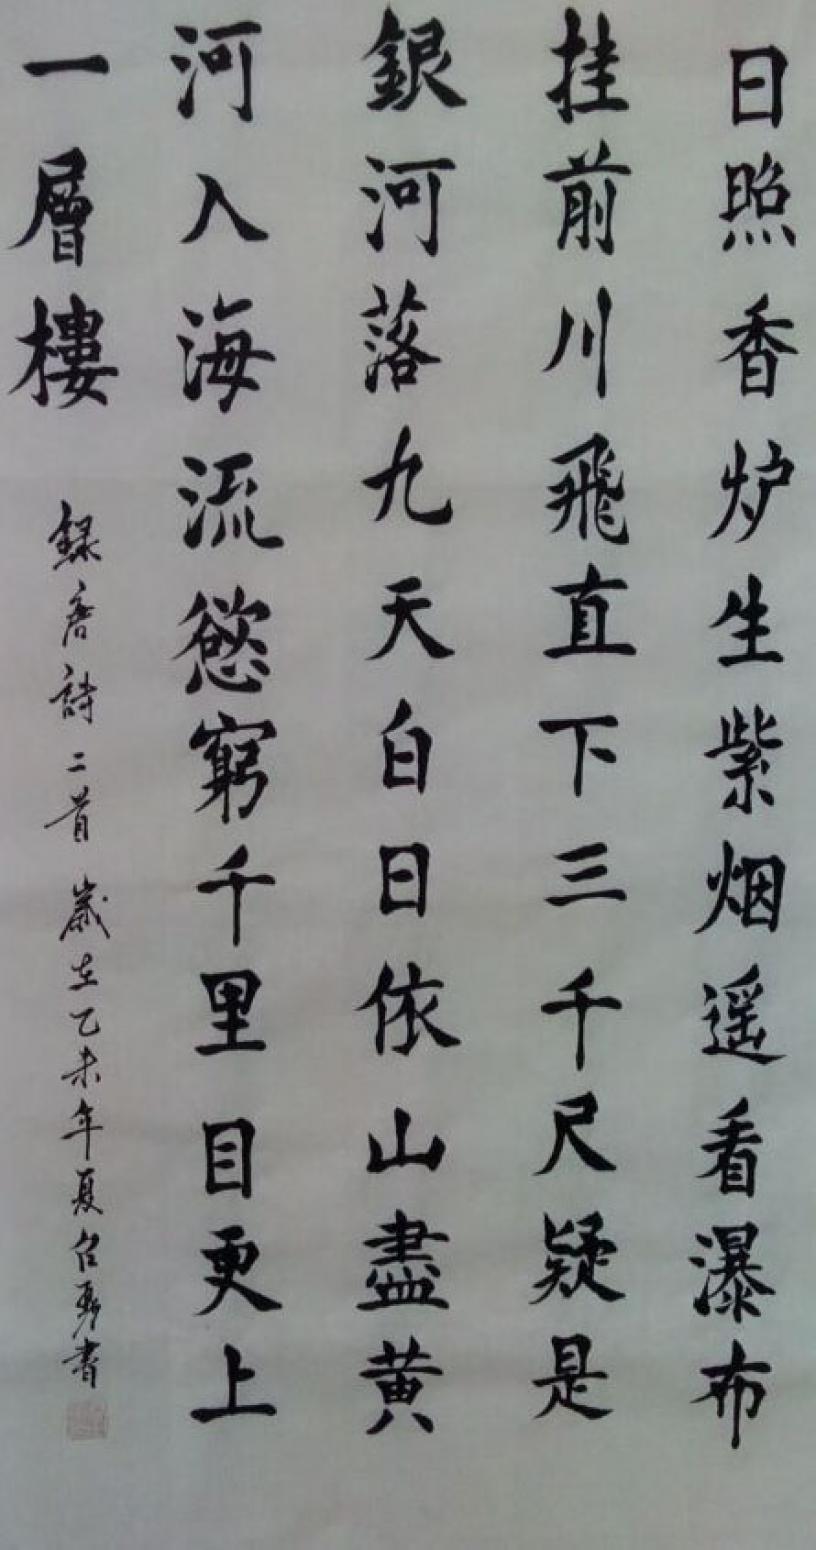 日照香炉生紫烟遥看瀑布
挂前川飛直下三千尺疑是
銀河落九天白日依山盡黄
河入海流慾窮千里目更上
一層樓 録唐詩二首 歲在乙未年夏召勇書